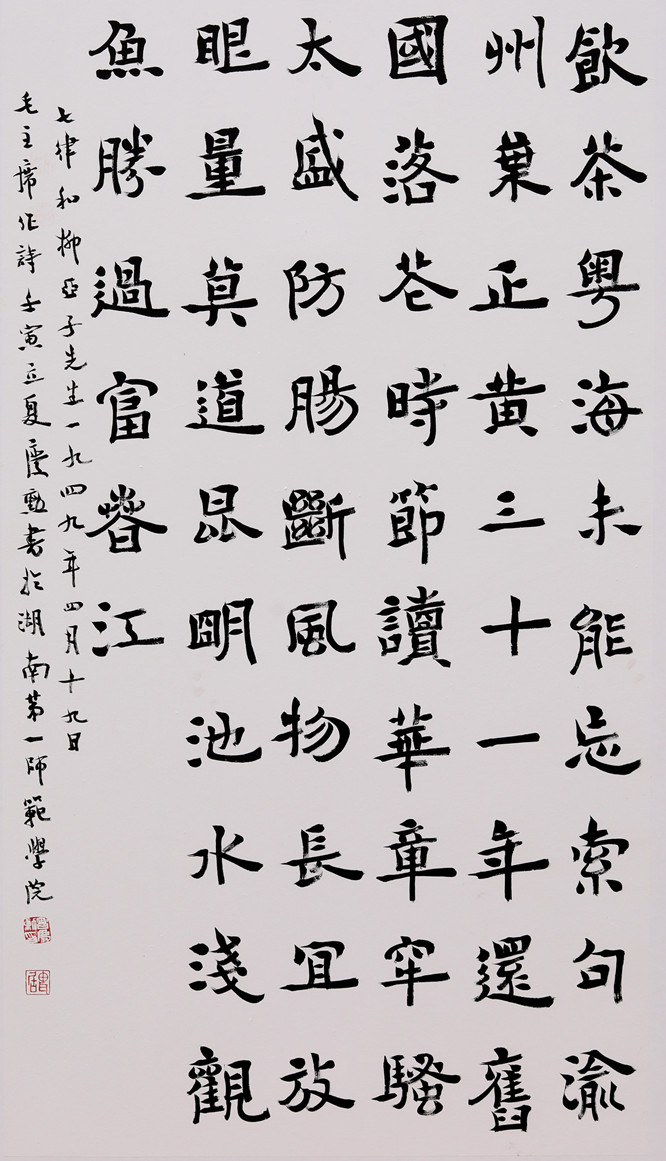 飲茶粵海未能忘索句渝
州葉正黃三十一年還舊
國落花時節讀華章牢騷
太盛防腸斷風物長宜放
眼量莫道昆明池水淺觀
魚勝過富春江
七律和柳亞子先生一九四九年四月十九日
毛主席作詩壬寅立夏慶勳書於湖南第一師範學院